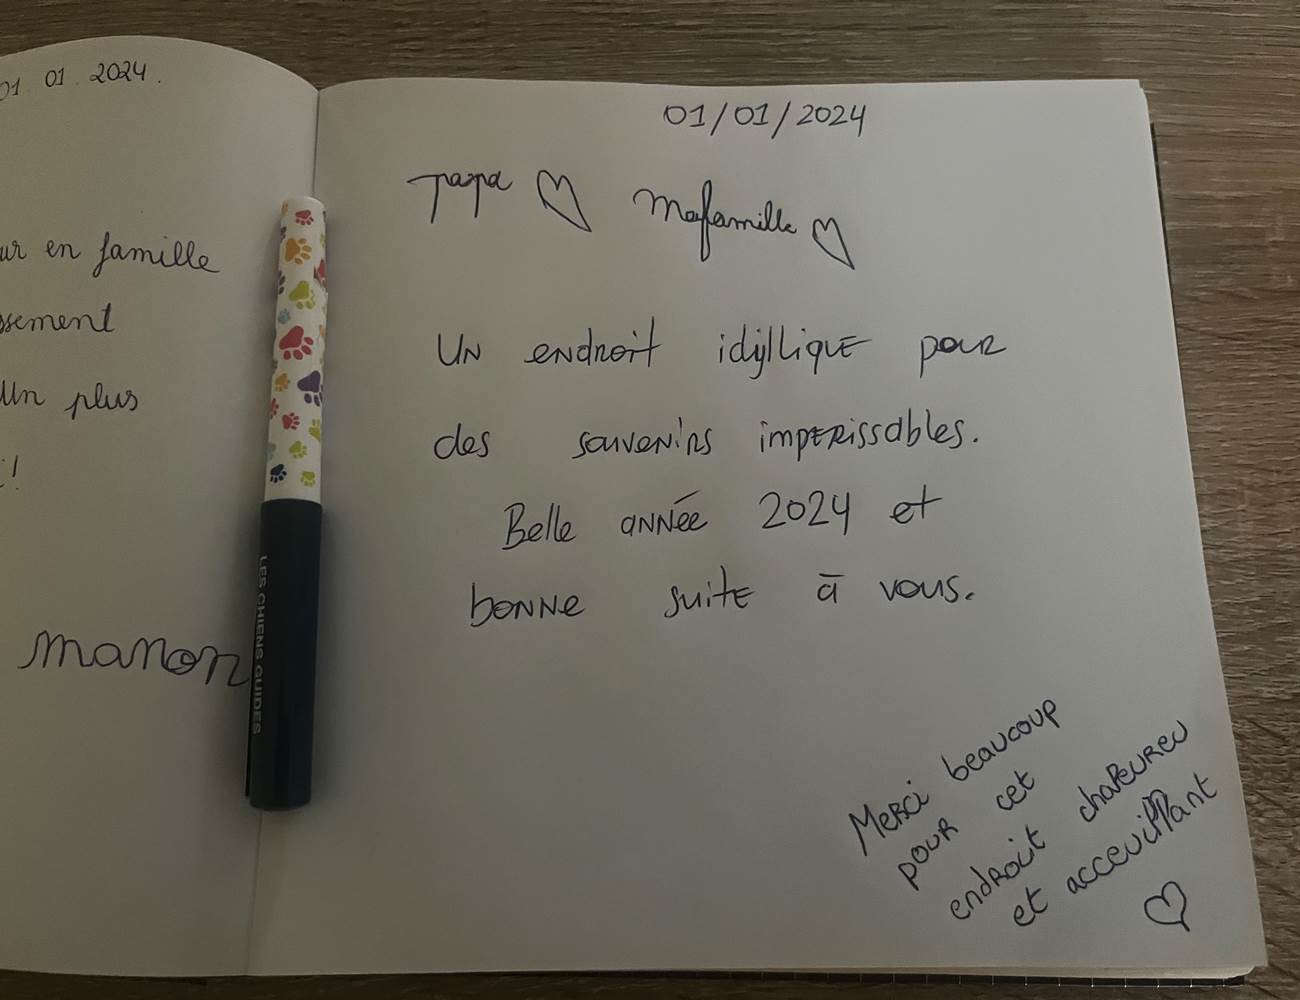 01 01 2024.
en famille
Un plus
manon
LES CHIENS GUIDES
01/01/2024
papa ♡ Mafamille ♡
Un endroit idyllique pour
des souvenirs imperissables.
Belle année 2024 et
bonne suite à vous.
Merci beaucoup
pour cet
endroit chaleureu
et acceuillant
♡